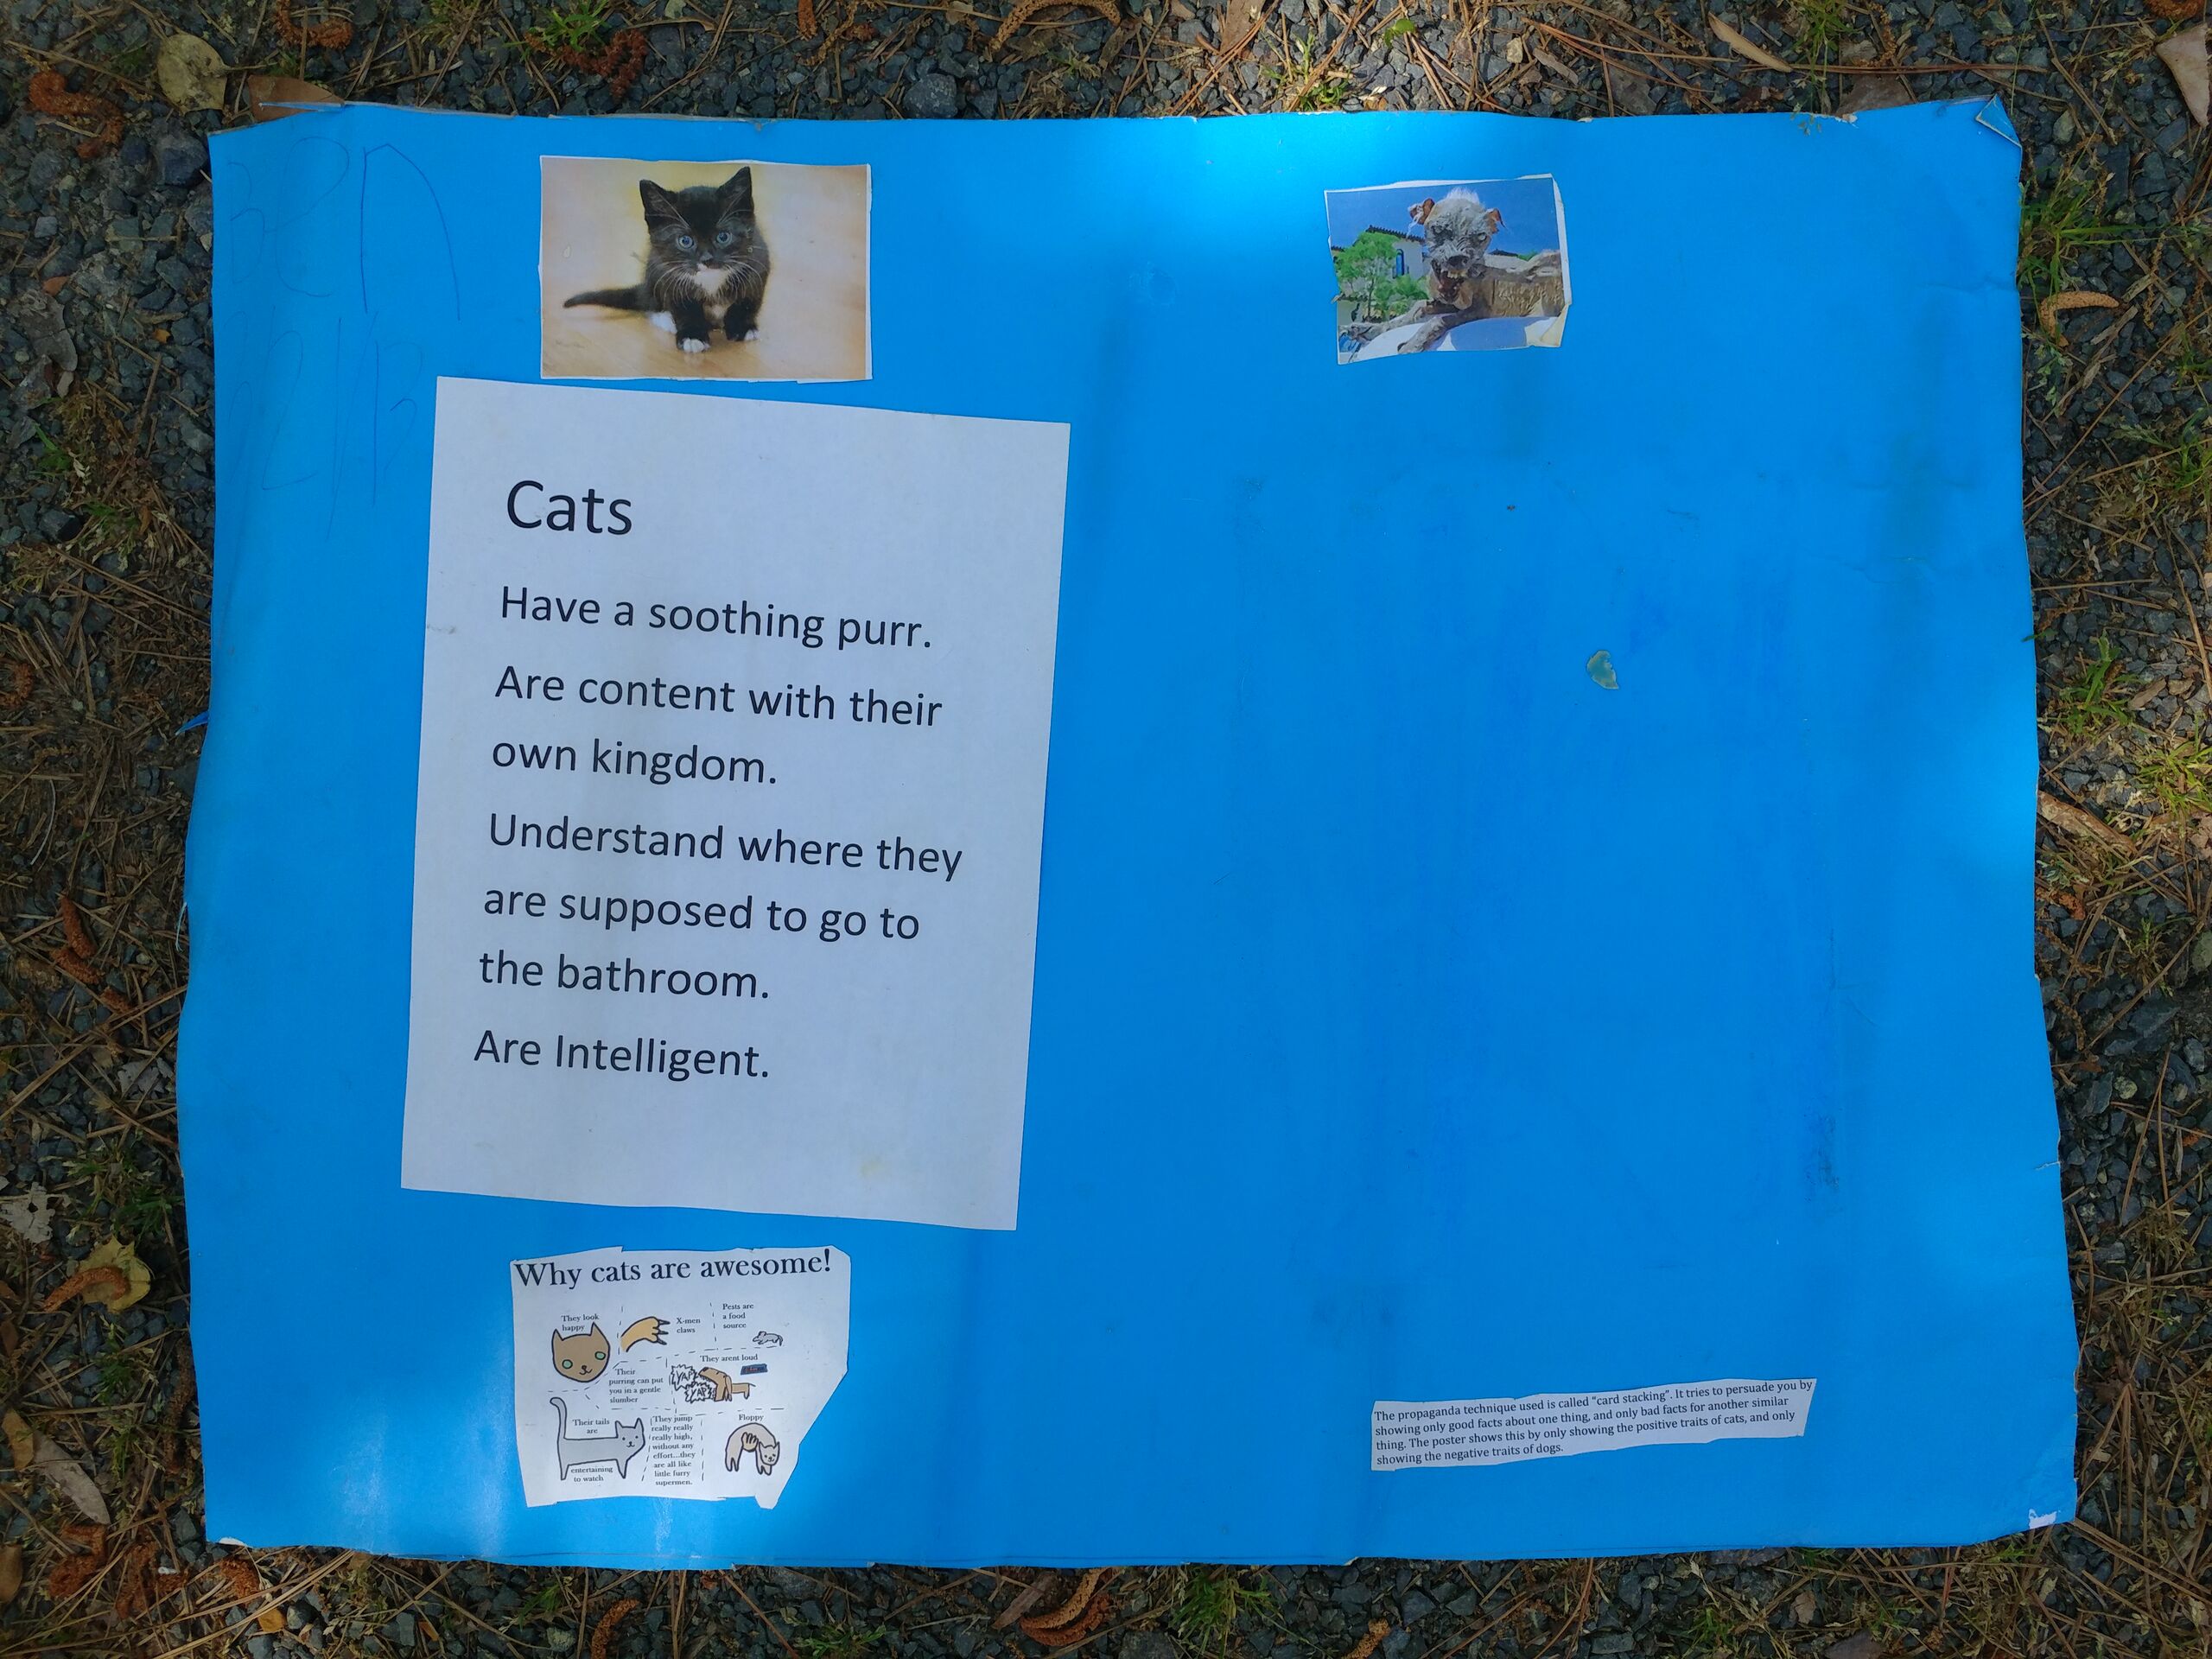 Ben
Cats
Have a soothing purr.
Are content with their
own kingdom.
Understand where they
are supposed to go to
the bathroom.
Are Intelligent.
Why cats are awesome!
They look
happy
X-men
claws
Pests are
a food
source
Their
purring can put
you in a gentle
slumber
They arent loud
YAP
YAP
Their tails
are
entertaining
to watch
They jump
really really
really high,
without any
effort...they
are all like
little furry
supermen.
Floppy
The propaganda technique used is called "card stacking". It tries to persuade you by
showing only good facts about one thing, and only bad facts for another similar
thing. The poster shows this by only showing the positive traits of cats, and only
showing the negative traits of dogs.